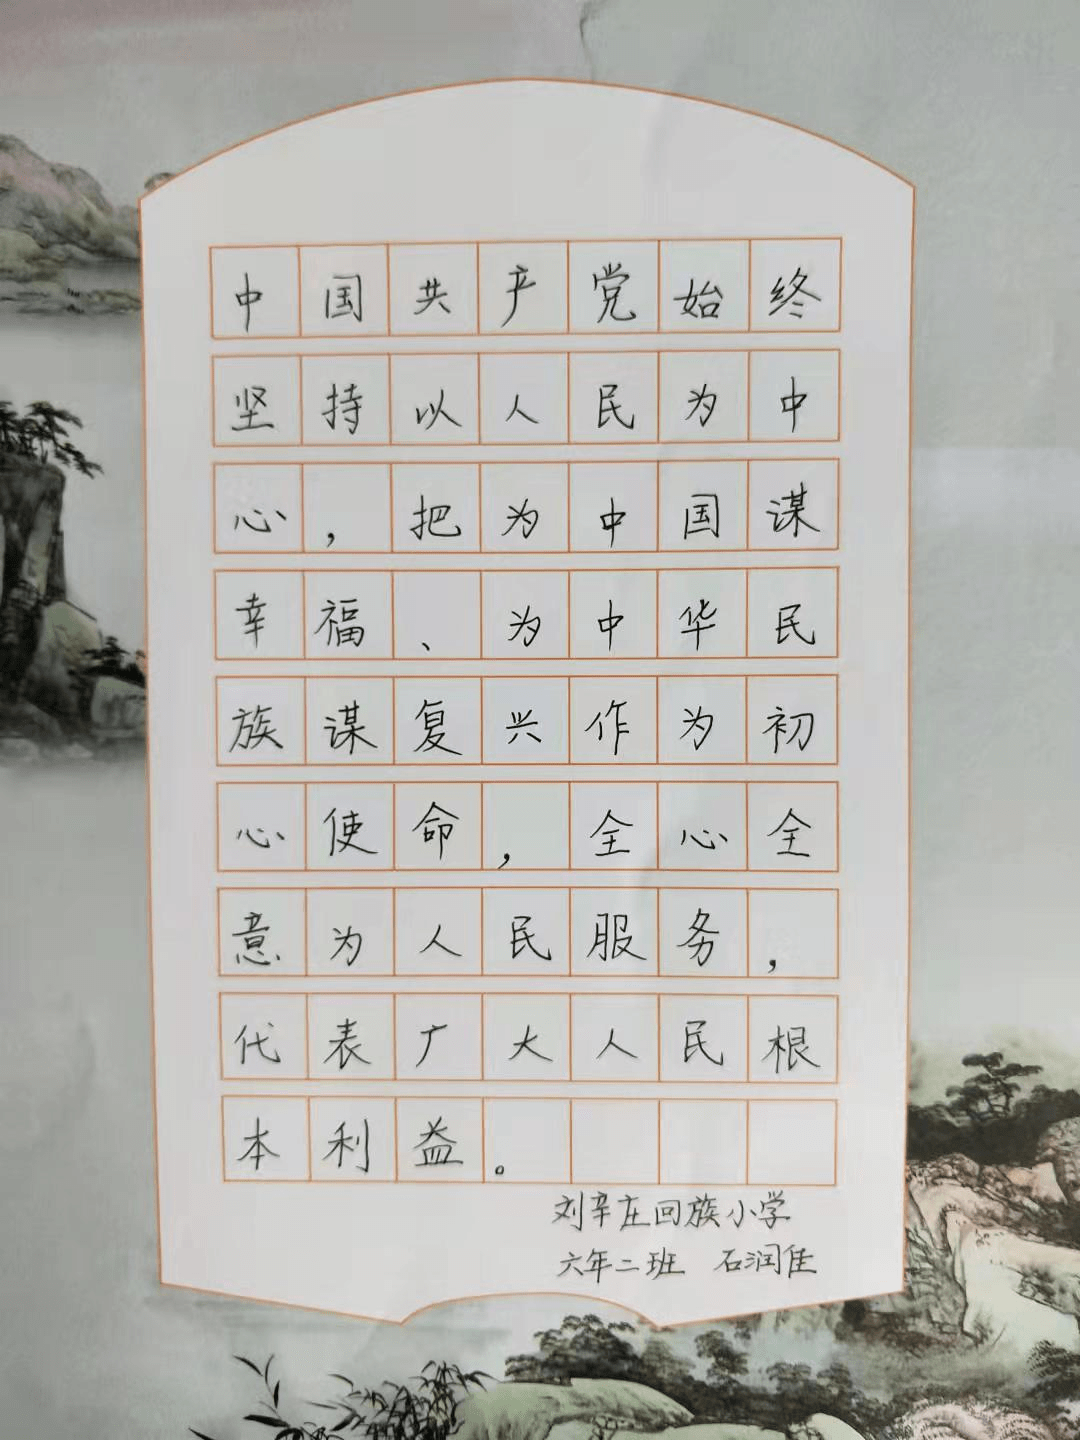 中国共产党始终
坚持以人民为中
心，把为中国谋
幸福、为中华民
族谋复兴作为初
心使命，全心全
意为人民服务，
代表广大人民根
本利益。
刘辛庄回族小学
六年二班 石润佳